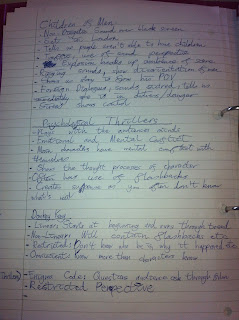 Children of Men
Non Diegetic Sound over black screen
Set in London
Tells us people aren't able to have children
Explosion breaks up ambience of scene
Ringing sounds, show disorientation of man
Shows us story is from his POV
Foreign Dialogue, sounds scared, tells us
she is in distress/danger
Formal dress code
Psychological Thrillers
Plays with the audiences minds
Emotional and Mental Conflict
Main characters have mental conflict with
themselves
Show the thought processes of character
Often has use of flashbacks
Creates suspense as you often don't know
what's next
Donkey Boy
Linear: Starts at beginning and runs through to end
Non-Linear: Will contain flashbacks etc.
Restricted: Don't know who he is, why it happened etc.
Omniscient: Know more than characters know
Enigma Codes: Questions audience ask through film
Restricted Perspective